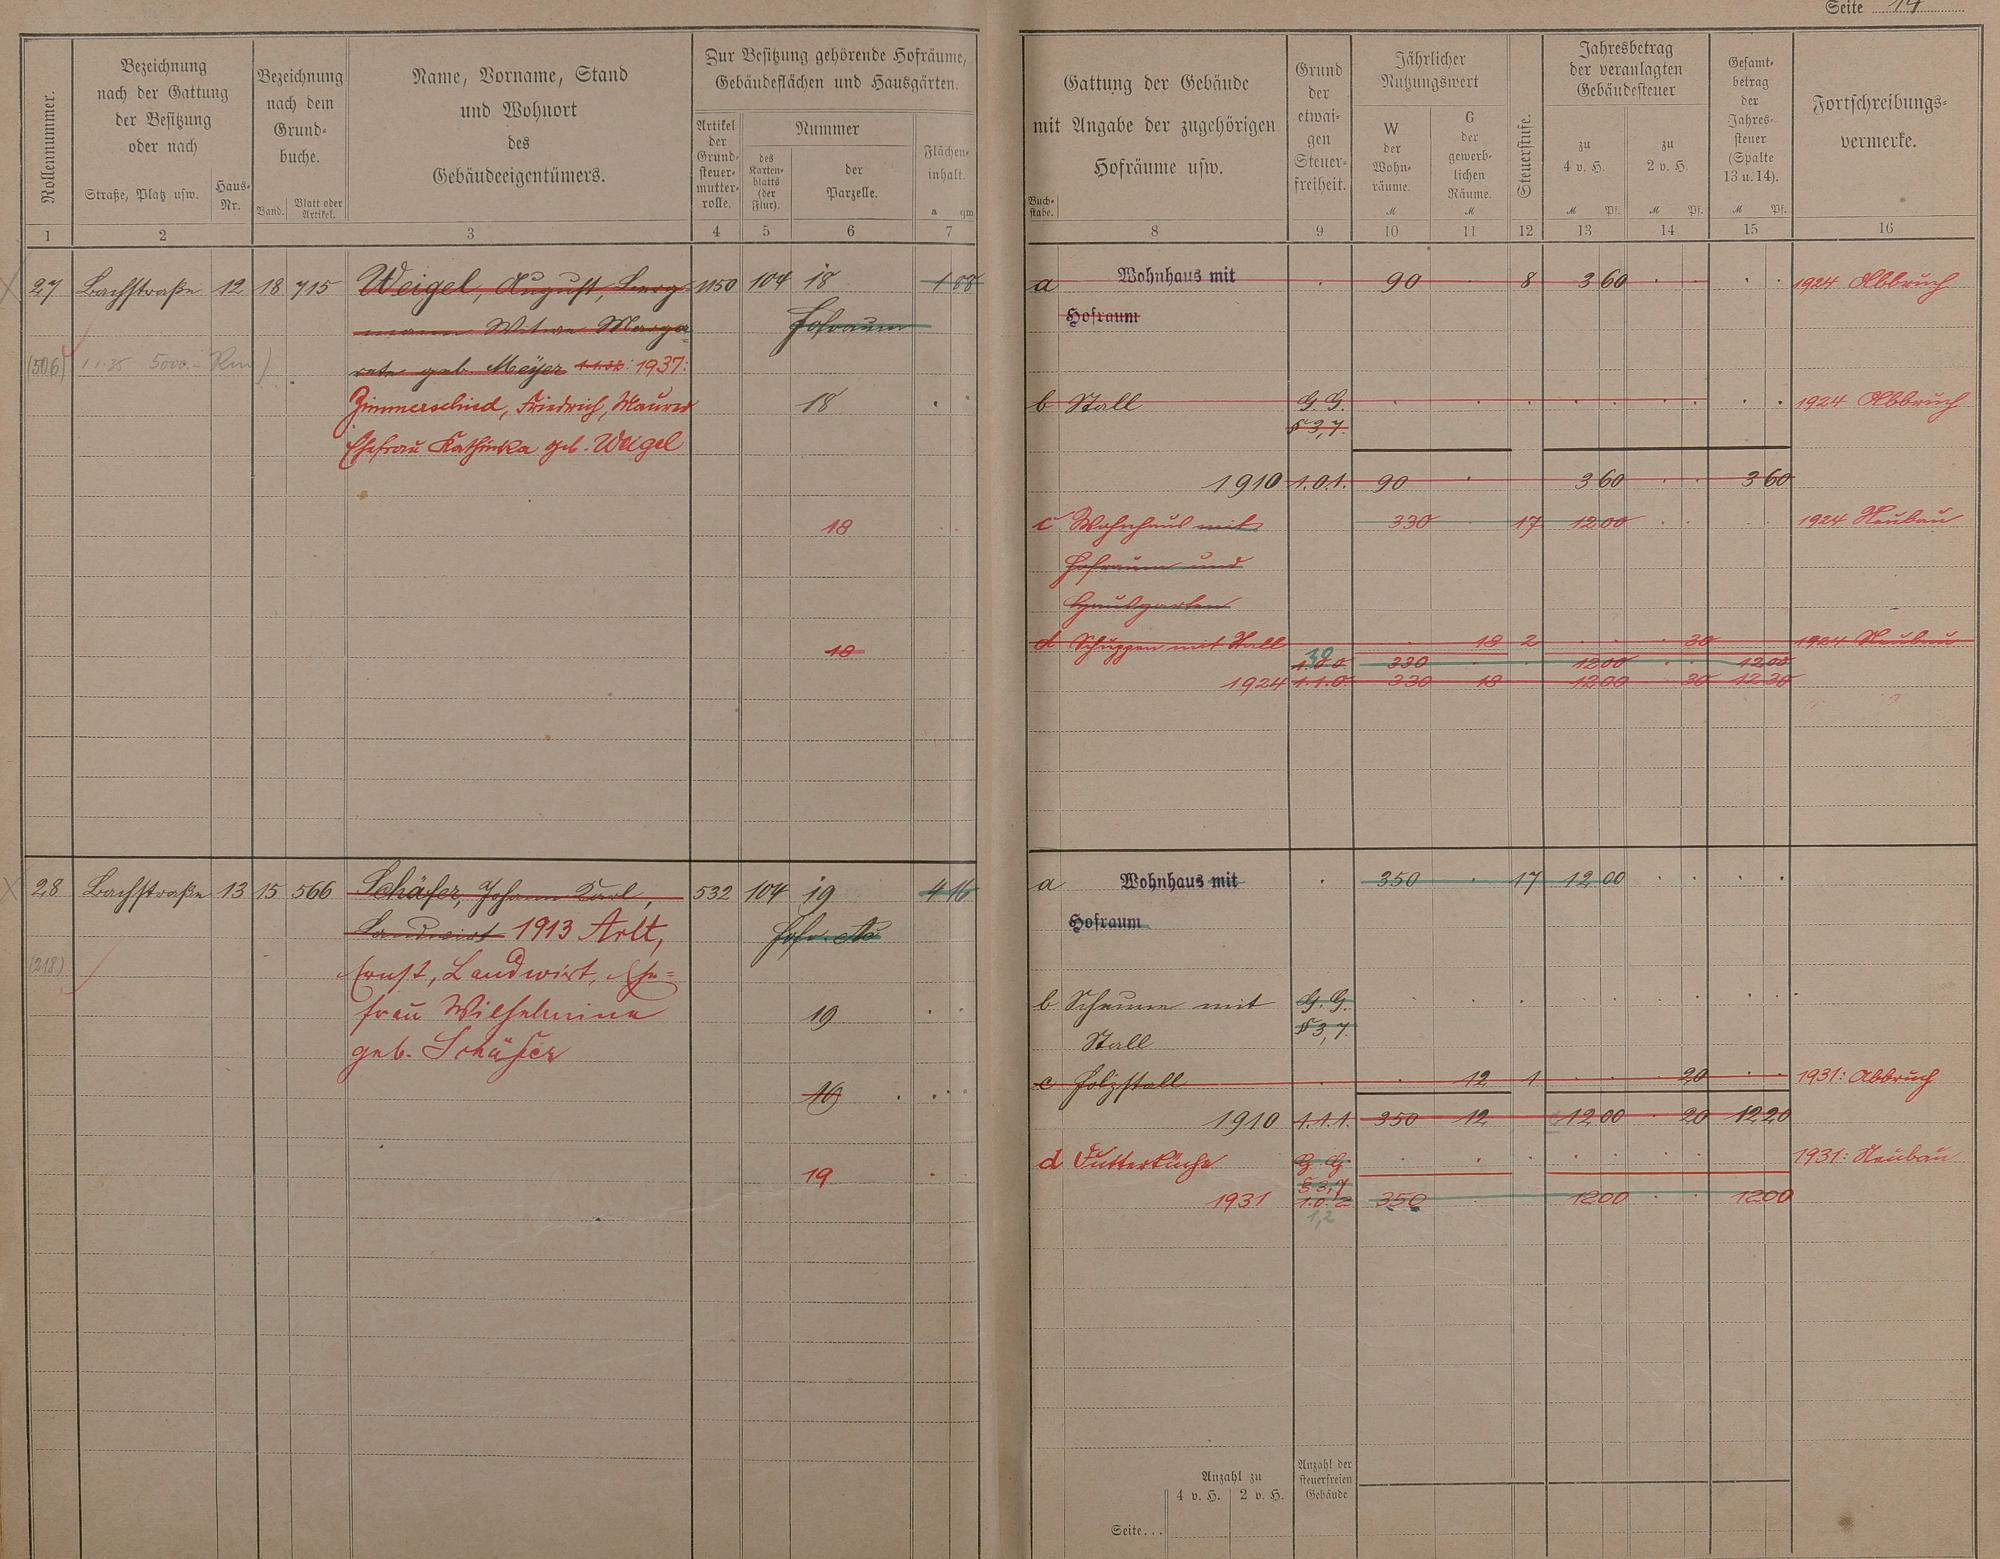 Seite 14
Rollennummer.
Bezeichnung
nach der Gattung
der Besitzung
oder nach
Straße, Platz usw.
Haus-
Nr.
Bezeichnung
nach dem
Grund-
buche.
Band.
Blatt oder
Artikel.
Name, Vorname, Stand
und Wohnort
des
Gebäudeeigentümers.
Zur Besitzung gehörende Hofräume,
Gebäudeflächen und Hausgärten.
Artikel
der
Grund-
steuer-
mutter-
rolle.
Nummer
des
Karten-
blatts
(der
Flur).
der
Parzelle.
Flächen-
inhalt.
a qm
1 2 3 4 5 6 7
27 Bachstraße 12 18 715 Weigel, August, Berg- 1150 104 18 1 88
mann Witwe Marga- Hofraum
(506) 1.1.35 5000.- Rm) rete geb. Meyer 1.1.32: 1937:
Zimmerschied, Friedrich, Maurer 18
Ehefrau Kathinka geb. Weigel
18
18
28 Bachstraße 13 15 566 Schäfer, Johann Karl, 532 104 19 4 16
Landwirt 1913 Arlt, Hofr.
(218) Ernst, Landwirt, Ehe-
frau Wilhelmine 19
geb. Schäfer
19
19
Gattung der Gebäude
mit Angabe der zugehörigen
Hofräume usw.
Buch-
stabe.
Grund
der
etwai-
gen
Steuer-
freiheit.
Jährlicher
Nutzungswert
W
der
Wohn-
räume.
M
G
der
gewerb-
lichen
Räume.
M
Steuerstufe.
Jahresbetrag
der veranlagten
Gebäudesteuer
zu
4 v. H.
M Pf.
zu
2 v. H.
M Pf.
Gesamt-
betrag
der
Jahres-
steuer
(Spalte
13 u. 14).
M Pf.
Fortschreibungs-
vermerke.
8 9 10 11 12 13 14 15 16
a Wohnhaus mit 90 8 3 60 1924 Abbruch
Hofraum
b Stall G. G. 1924 Abbruch
§ 3,7.
1910 1.0.1. 90 3 60 3 60
c Wohnhaus mit 330 17 12 00 1924 Neubau
Hofraum und
Hausgarten
d Schuppen mit Stall 18 2 30 1924 Neubau
1.0.0 330 12 00 12 00
1924 1.1.0. 330 18 12 00 30 12 30
a Wohnhaus mit 350 17 12 00
Hofraum
b Scheune mit G. G.
Stall § 3,7.
c Holzstall 12 1 20 1931: Abbruch
1910 1.1.1. 350 12 12 00 20 12 20
d Futterküche G. G. 1931: Neubau
§ 3,7
1931 1.0.2 350 12 00 12 00
1,2
Anzahl zu
4 v. H. 2 v. H.
Anzahl der
steuerfreien
Gebäude
Seite...